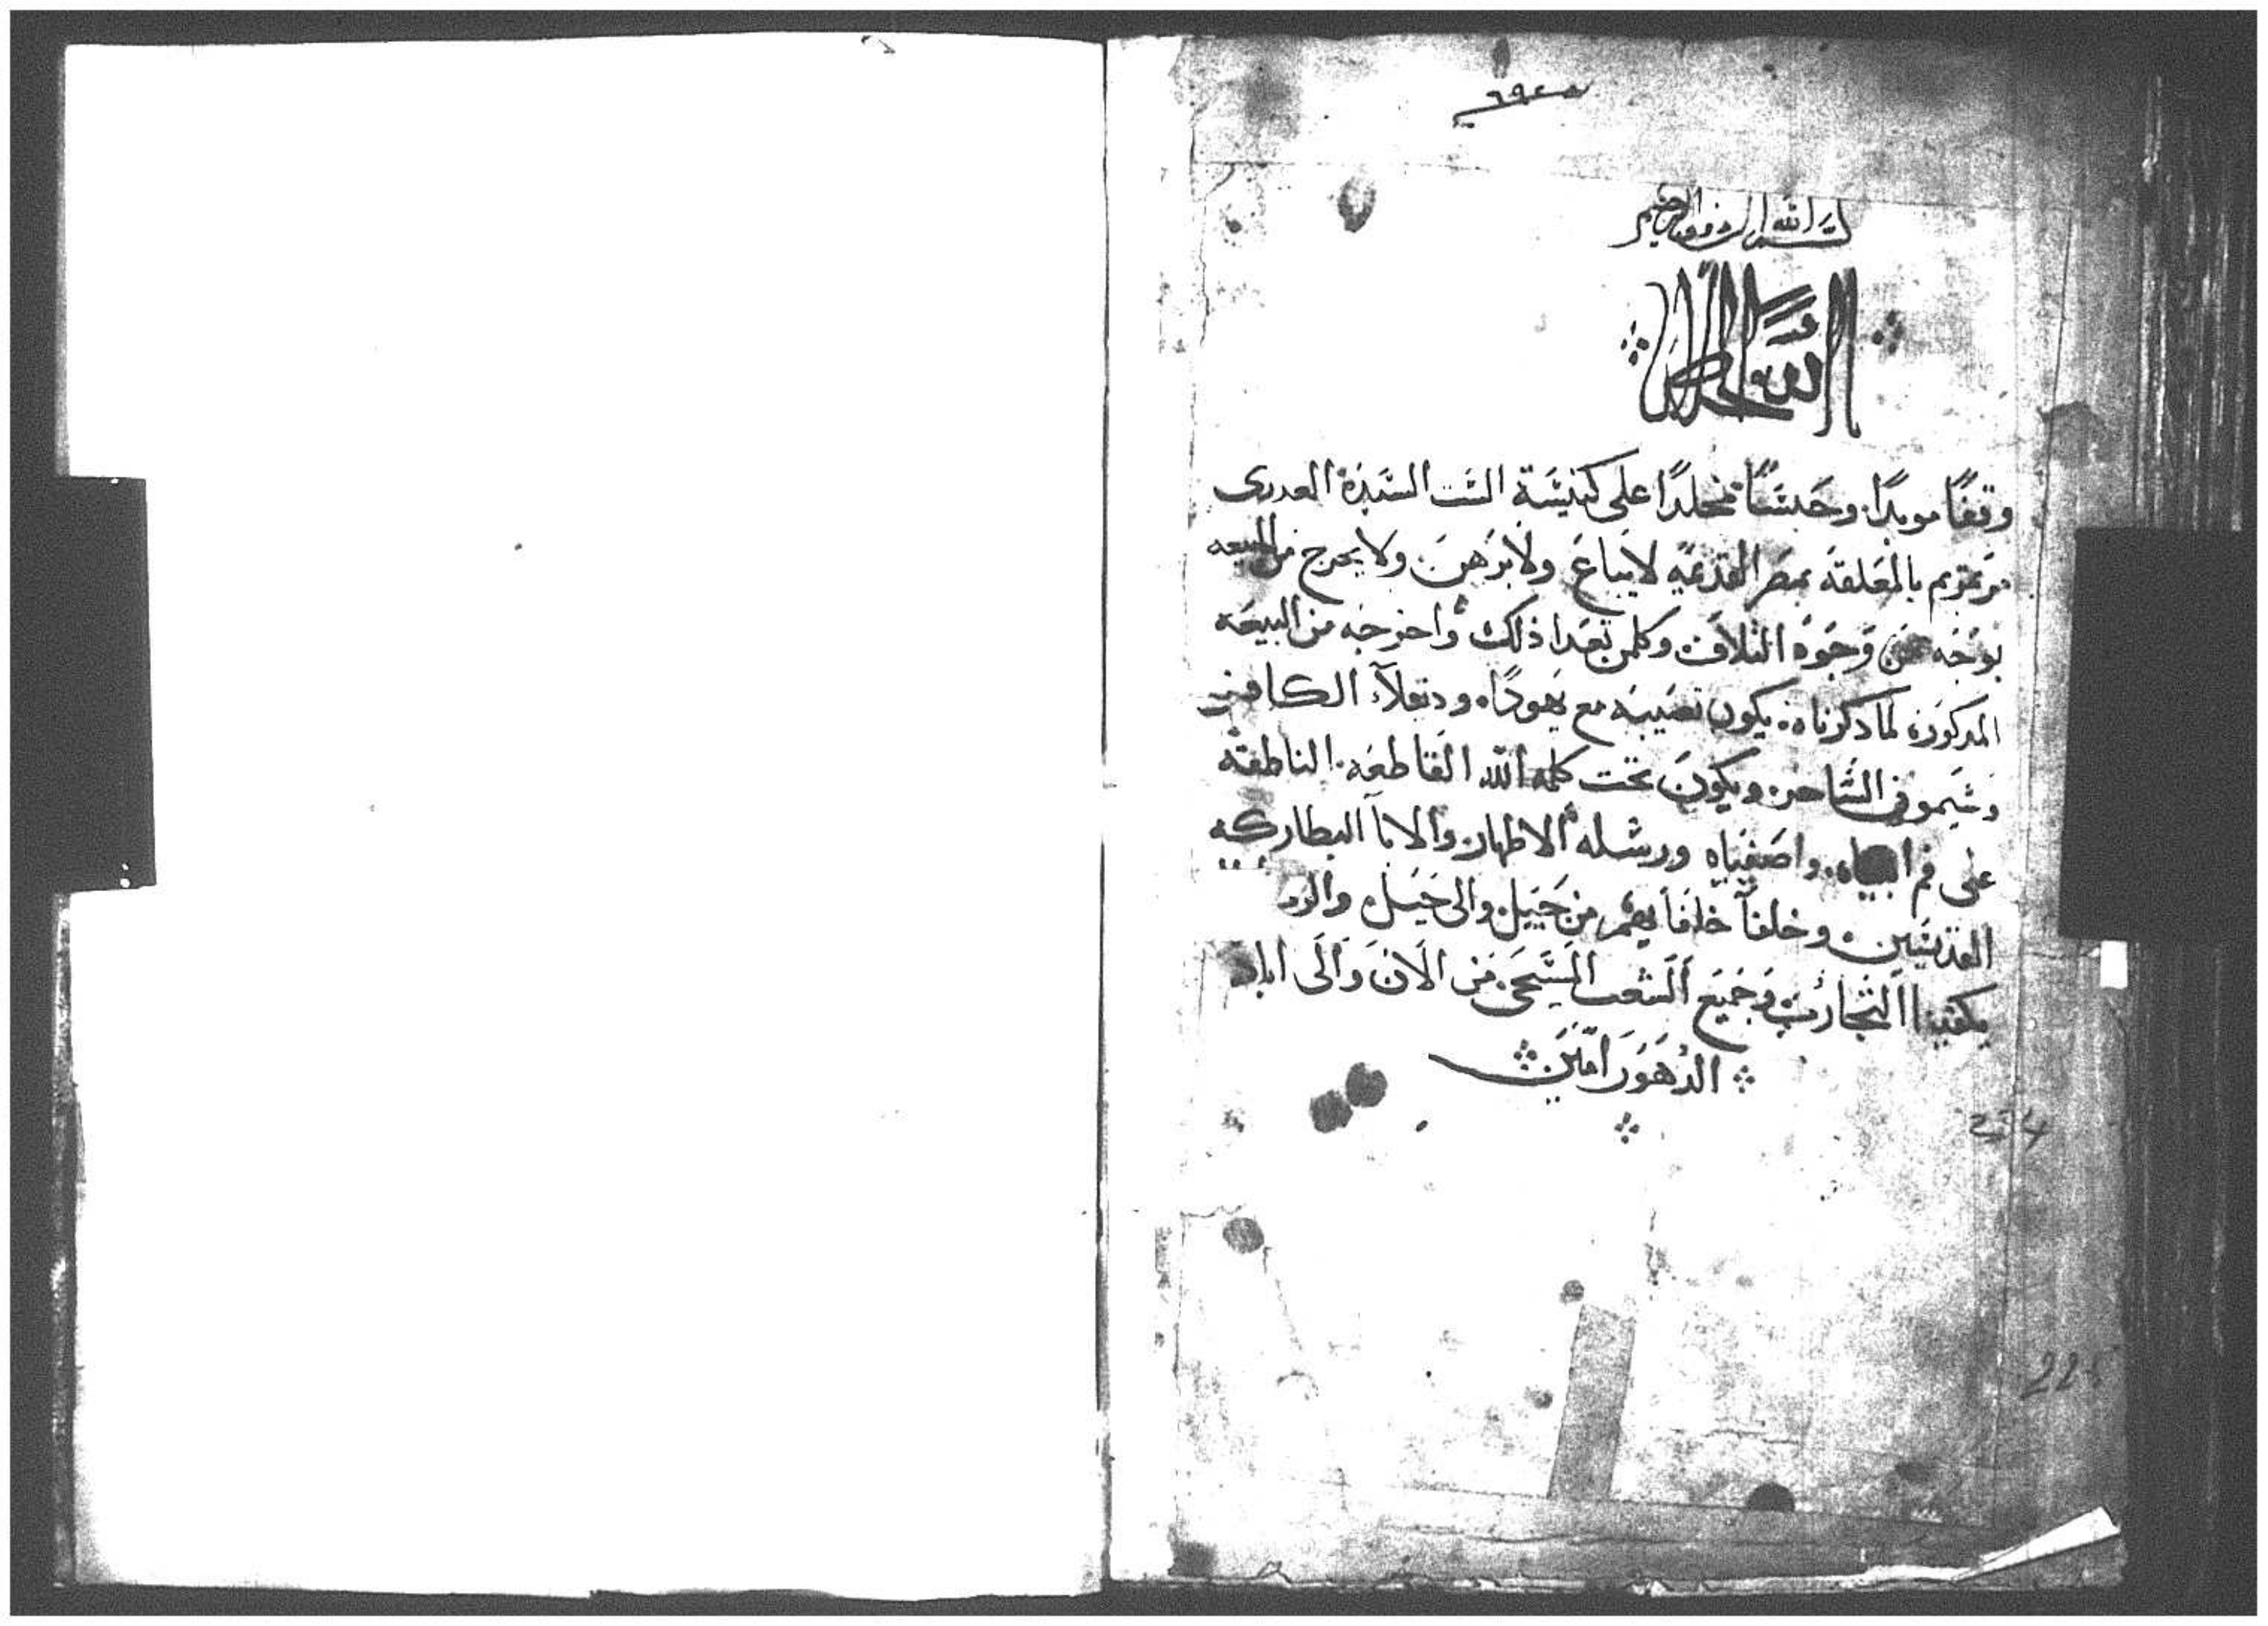 بسم الله الروف الرحيم
وقفًا موبدًا. وحبسًا مخلدًا على كنيسة الست السيدة العدرى
مرتمريم بالمعلقة بمصر القديمة لا يباع ولا يرهن ولا يخرج من البيعه
بوجه من وجوه التلاف وكلمن تعدا ذلك واخرجه من البيعة
المدكورة لما دكرناه يكون نصيبه مع يهودا. ودقلاء الكافر
وسيمون الساحر. ويكون تحت كلمه الله القاطعه. الناطقة
على فم انبياه. واصفياه ورسله الاطهار والابا البطاركه
القديسين. وخلفا خلفايهم من جيل. والى جيل
التجارب وجميع الشعب المسيحى. من الان والى اباد
الدهور امين
274